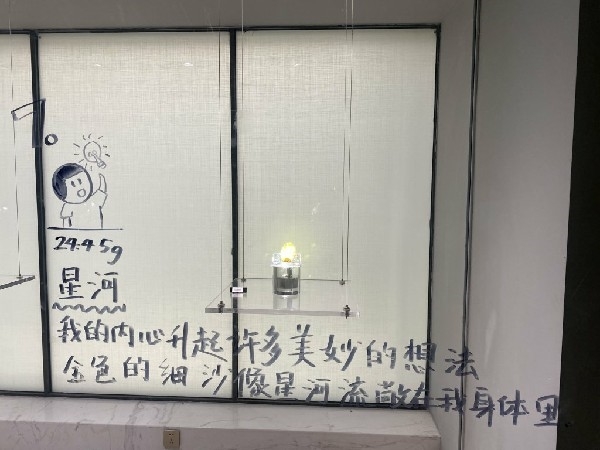 7.
24.45g
星河
我的内心升起许多美妙的想法
金色的细沙像星河流散在我身体里